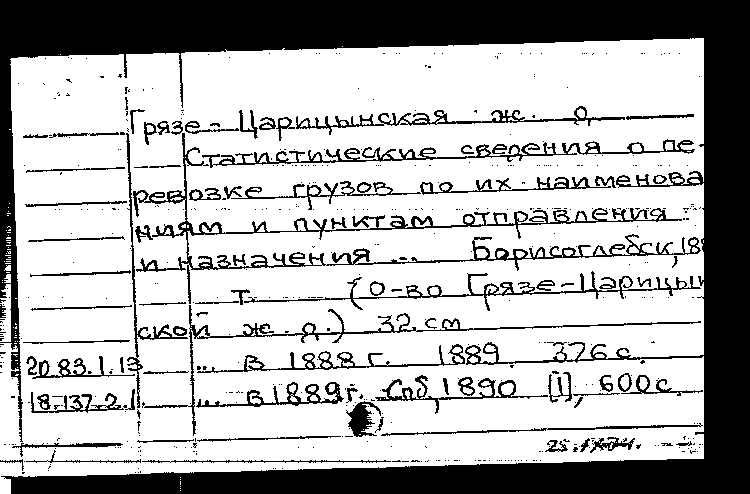 Грязе-Царицынская ж. д.
Статистические сведения о пе-
ревозке грузов по их наименова
ниям и пунктам отправления
и назначения ... Борисоглебск, 188
т. (О-во Грязе-Царицын
ской ж. д.) 32 см
20.83.1.13. ... в 1888 г. 1889. 376 с.
18.137.2.1. ... в 1889 г. Спб, 1890 [1], 600 с.